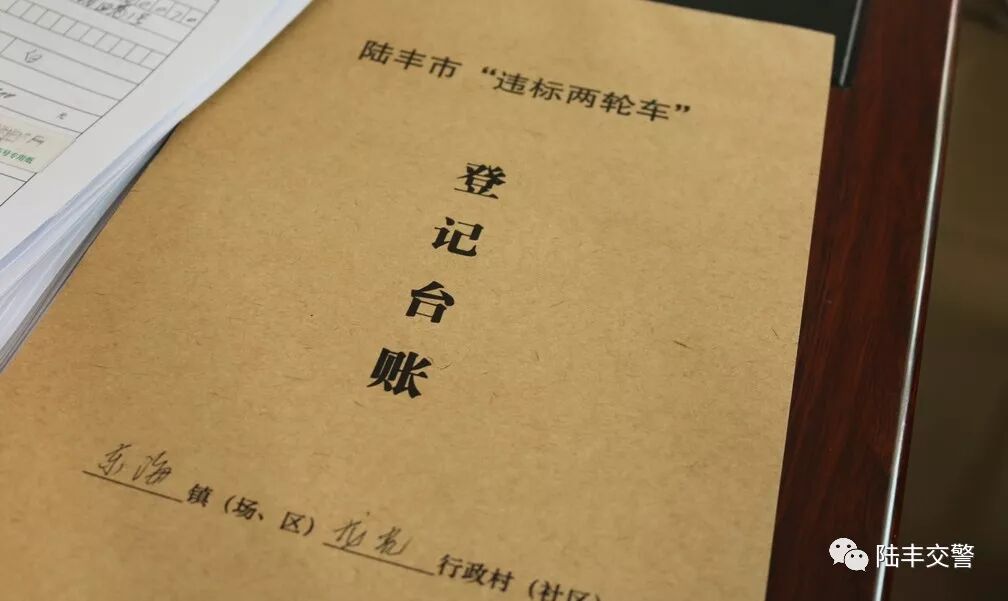 陆丰市“违标两轮车”
登
记
台
账
东海镇（场、区）行政村（社区）
陆丰交警